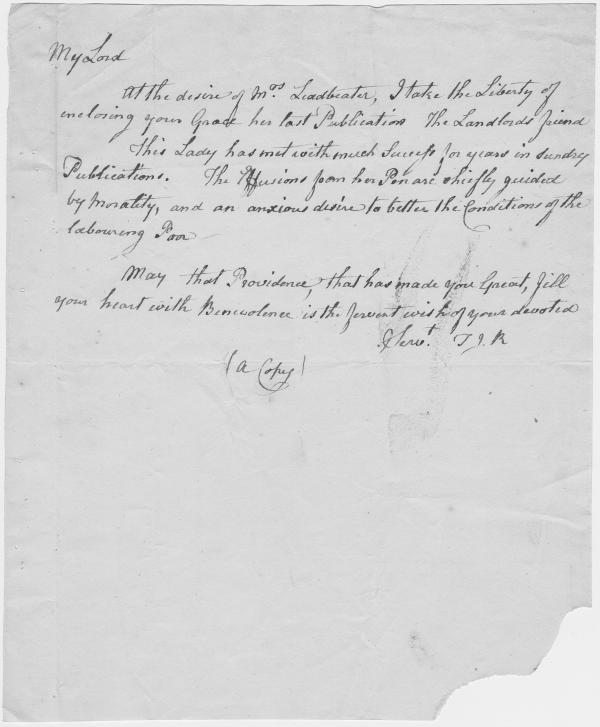 My Lord
At the desire of Mrs. Leadbeater, I take the Liberty of
inclosing your Grace her last Publication The Landlords friend
This Lady has met with much Success for years in sundry
Publications. The Effusions from her Pen are chiefly guided
by Morality, and an anxious desire to better the Conditions of the
labouring Poor
May that Providence, that has made you Great, fill
your heart with Benevolence is the fervent wish of your devoted
& Servt. T J R
(A Copy)